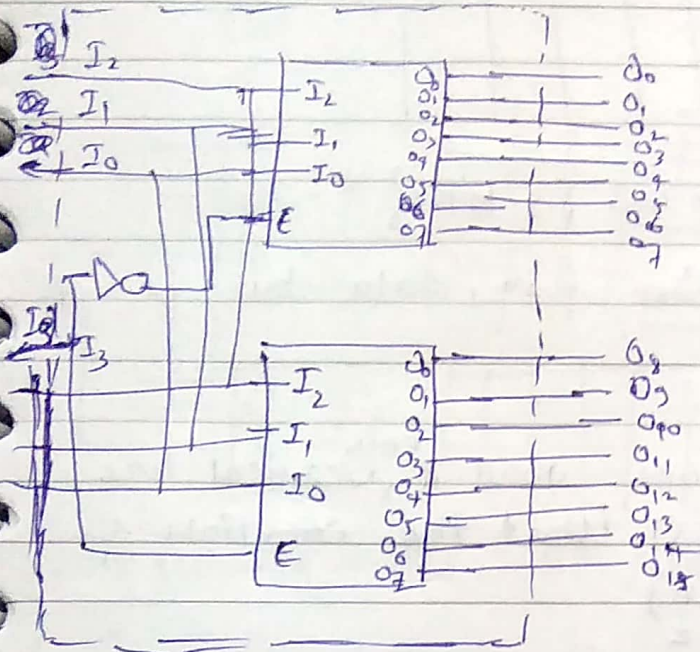 I2
I1
I0
I2
I1
I0
E
O0
O1
O2
O3
O4
O5
O6
O7
O0
O1
O2
O3
O4
O5
O6
O7
I3
I2
I1
I0
E
O0
O1
O2
O3
O4
O5
O6
O7
O8
O9
O10
O11
O12
O13
O14
O15